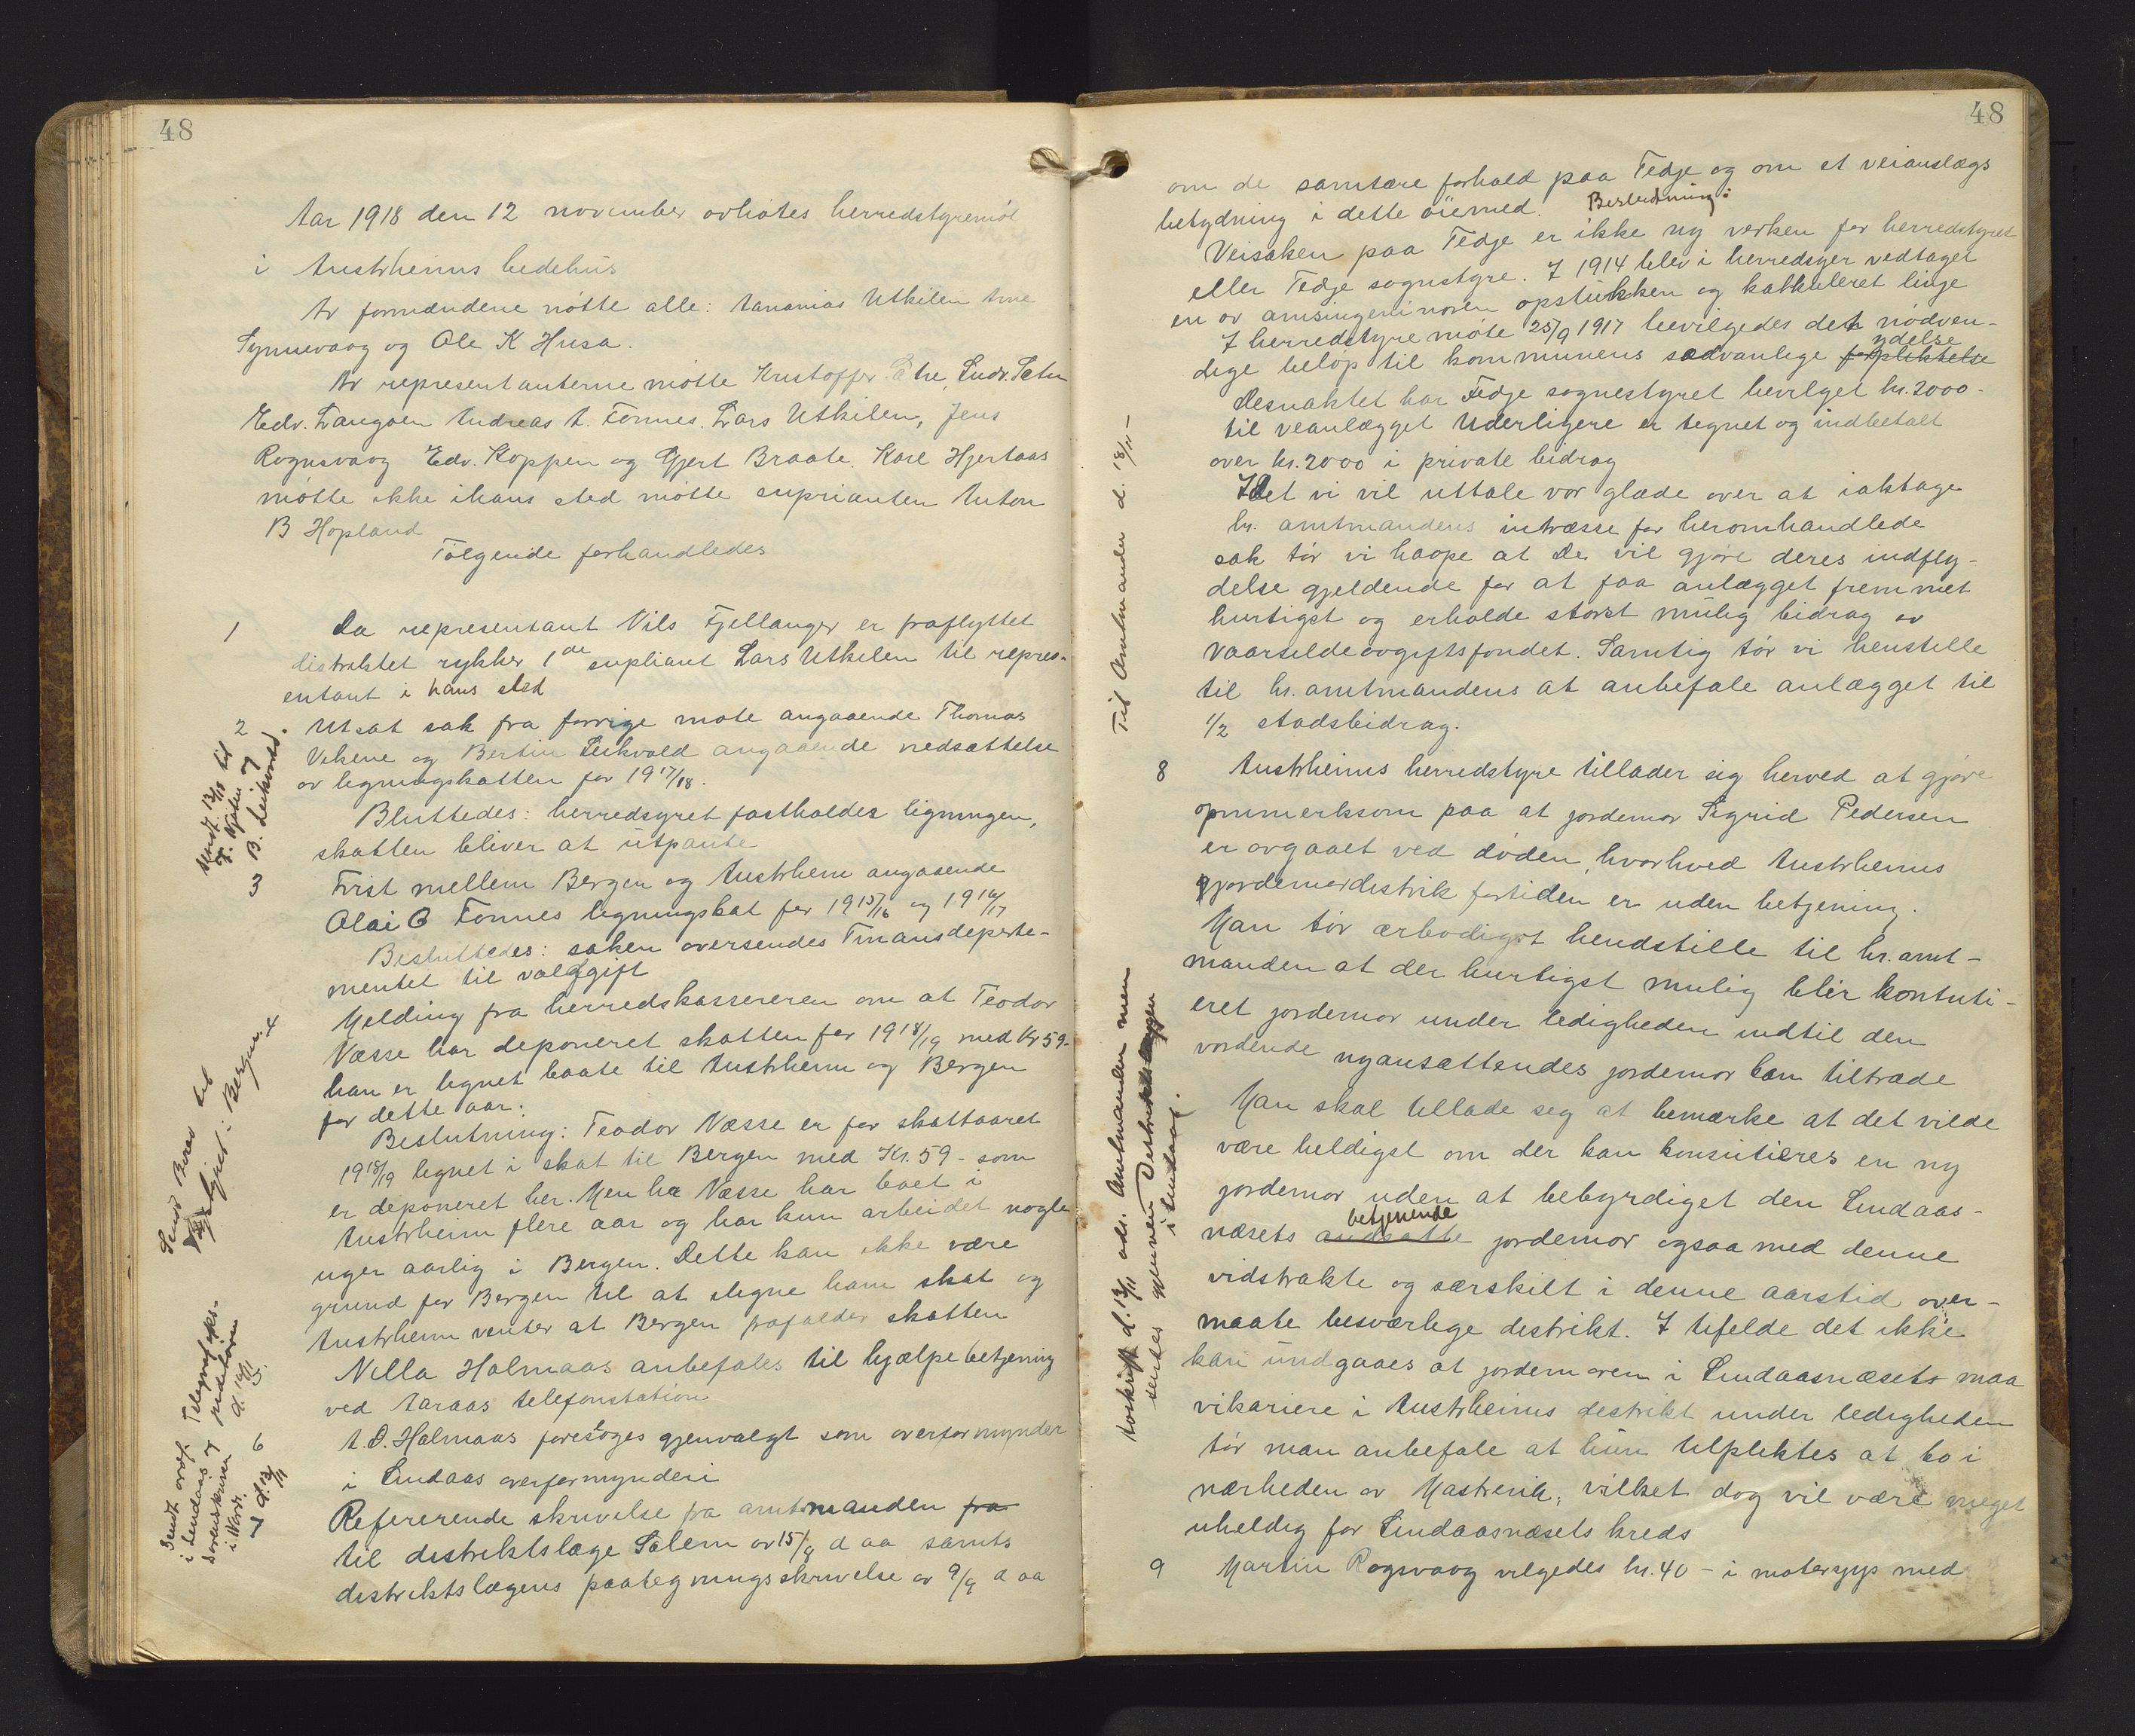 48
Aar 1918 den 12 november avholtes herredstyremöt
i Austrheims bedehus
Av formændene mötte alle: Ananias Utkilen Arne
Synnevaag og Ole K Husa.
Av representanterne mötte Kristoffer Ludv. Sætre
Edv. Langöen Andreas A. Fonnes. Lars Utkilen, Jens
Rognsvaag Edv. Koppen og Gjert Braate. Karl Hjertaas
mötte ikke i hans sted mötte suprianten Anton
B Hopland
Fölgende forhandledes
1 Da representant Nils Fjellanger er fraflyttet
distriktet rykker 1de supliant Lars Utkilen til repres-
entant i hans sted
2 Utsat sak fra forrige möte angaaende Thomas
Vikene og Bertin Leikvold angaaende nedsættelse
av legningskatten for 1917/18.
Bluttedes: herredsyret fastholder ligningen,
skatten bliver at utpante
3 Tvist mellem Bergen og Austrheim angaaende
Olai O Fonnes legningskat for 1915/16 og 1916/17
Besluttedes: saken oversendes Finansdeparte-
mentet til voldgift
4 Melding fra herredskassereren om at Teodor
Næsse har deponeret skatten for 1918/19 med Kr 59-
han er lignet baate til Austrheim og Bergen
for dette aar.
Beslutning: Teodor Næsse er for skattaaret
1918/19 legnet i skat til Bergen med Kr. 59 - som
er deponeret her. Men hr Næsse har boet i
Austrheim flere aar og har kun arbeidet nogle
uger aarlig i Bergen. Dette kan ikke være
grund for Bergen til at ilegne ham skat og
Austrheim venter at Bergen frafalder skatten
5 Nilla Halmaas anbefales til hjælpebetjening
ved Aaraas telefonstation
6 A. O. Halmaas foreslöges gjenvalgt som overformynder
i Lindaas overformynderi
7 Refererende skrivelse fra amtmanden fra
til distriktslæge Salem av 15/8 d aa samts
distriktslægens paategningsskrivelse av 9/9 d aa
sendt 13/11 18 til
og
B. Leikvold.
Sendt Brev til
i Bergen
Sendt
i Lindaas og Telegrafinks-
Sorenskriver
i Nord. d. 14/11
d. 13/11
48
om de samtære forhold paa Fedje og om et veianlægs
betydning i dette öiemed. Beslutning:
Veisaken paa Fedje er ikke ny verken for herredstyret
eller Fedje sognstyre. I 1914 blev i herredsyer vedtaget
en av amsingeniören opstukken og kalkuleret linje
I herredstyre möte 25/9 1917 bevilgedes det nödven-
dige belöp til kommunens sedvanlige forpliktelse ydelse
Desuaktet har Fedje sognestyret bevilget kr. 2000-
til veanlægget Uderligere er tegnet og indbetalt
over kr. 2000 i private bidrag
Idet vi vil uttale vor glæde over at iaktage
hr. amtmandens intræsse for heromhandlede
sak tör vi haape at De vil gjöre deres indfly-
delse gjeldende for at faa anlægget fremmet
hurtigst og erholde störst mulig bidrag av
vaarsildeavgiftsfondet. Samtig tör vi henstille
til hr. amtmandens at anbefale anlægget til
1/2 stadsbidrag.
8 Austrheims herredstyre tillader sig herved at gjöre
opmmerksom paa at jordemor Sigrid Pedersen
er avgaaet ved döden, hvorhved Austrheims
gjordemordistrik fortiden er uden betjening.
Man tör ærbödigst hendstille til hr. amt-
manden at der hurtigst mulig blir kontuti-
eret jordemor under ledigheden indtil den
vordende nyansættendes jordemor kan tiltræde
Man skal tillade seg at bemærke at det vilde
være heldigst om der kan konsitieres en ny
jordemor uden at bebyrdiget den Lindaas-
næsets andsatte betjenende jordemor ogsaa med denne
vidstrakte og særskilt i denne aarstid over-
maate besværlege distrikt. I tifelde det ikke
kan undgaaes at jordemoren i Lindaasnæsets maa
vikariere i Austrheims distrikt under ledigheden
tör man anbefale at hun tilpliktes at bo i
nærheden av Mastrevik, vilket dog vil være meget
uheldig for Lindaasnæsets kreds
9 Martin Rognsvaag vilgedes kr. 40 - i motersyys med
Til Amtmanden d. 18/11 -
Avskrift d. 13/11 adr. Amtmanden men
sendes gjennem Distriktslægen
i Lindaas.